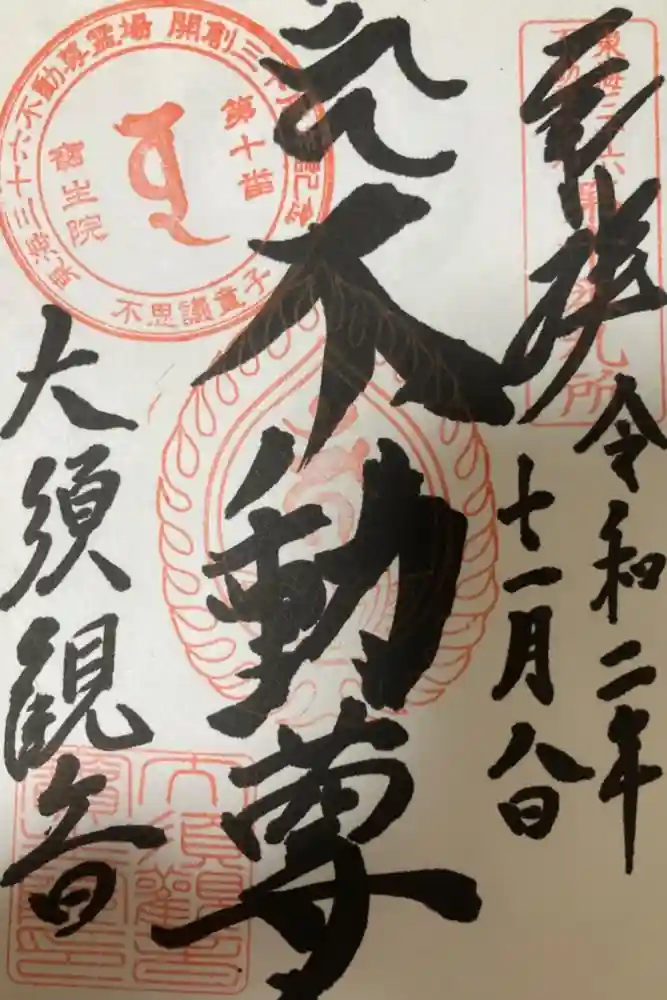 奉拝
令和二年
十一月八日
不動尊
大須観音
東海三十六不動尊霊場 開創三十
記念
第十番
寳生院
不思議童子
東海三十六
札所
大須観音